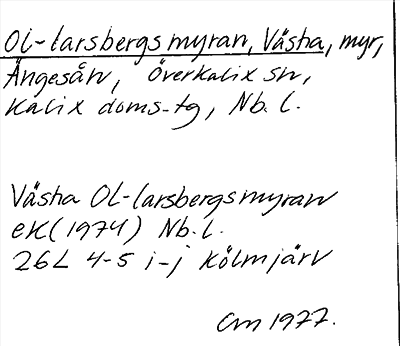 Ol-larsbergsmyran, Västra, myr,
Ängesån, Överkalix sn,
Kalix doms-tg, Nb. l.
Västra Ol-larsbergsmyran
ek (1974) Nb. l.
26L 4-5 i-j Kölmjärv
Cm 1977.